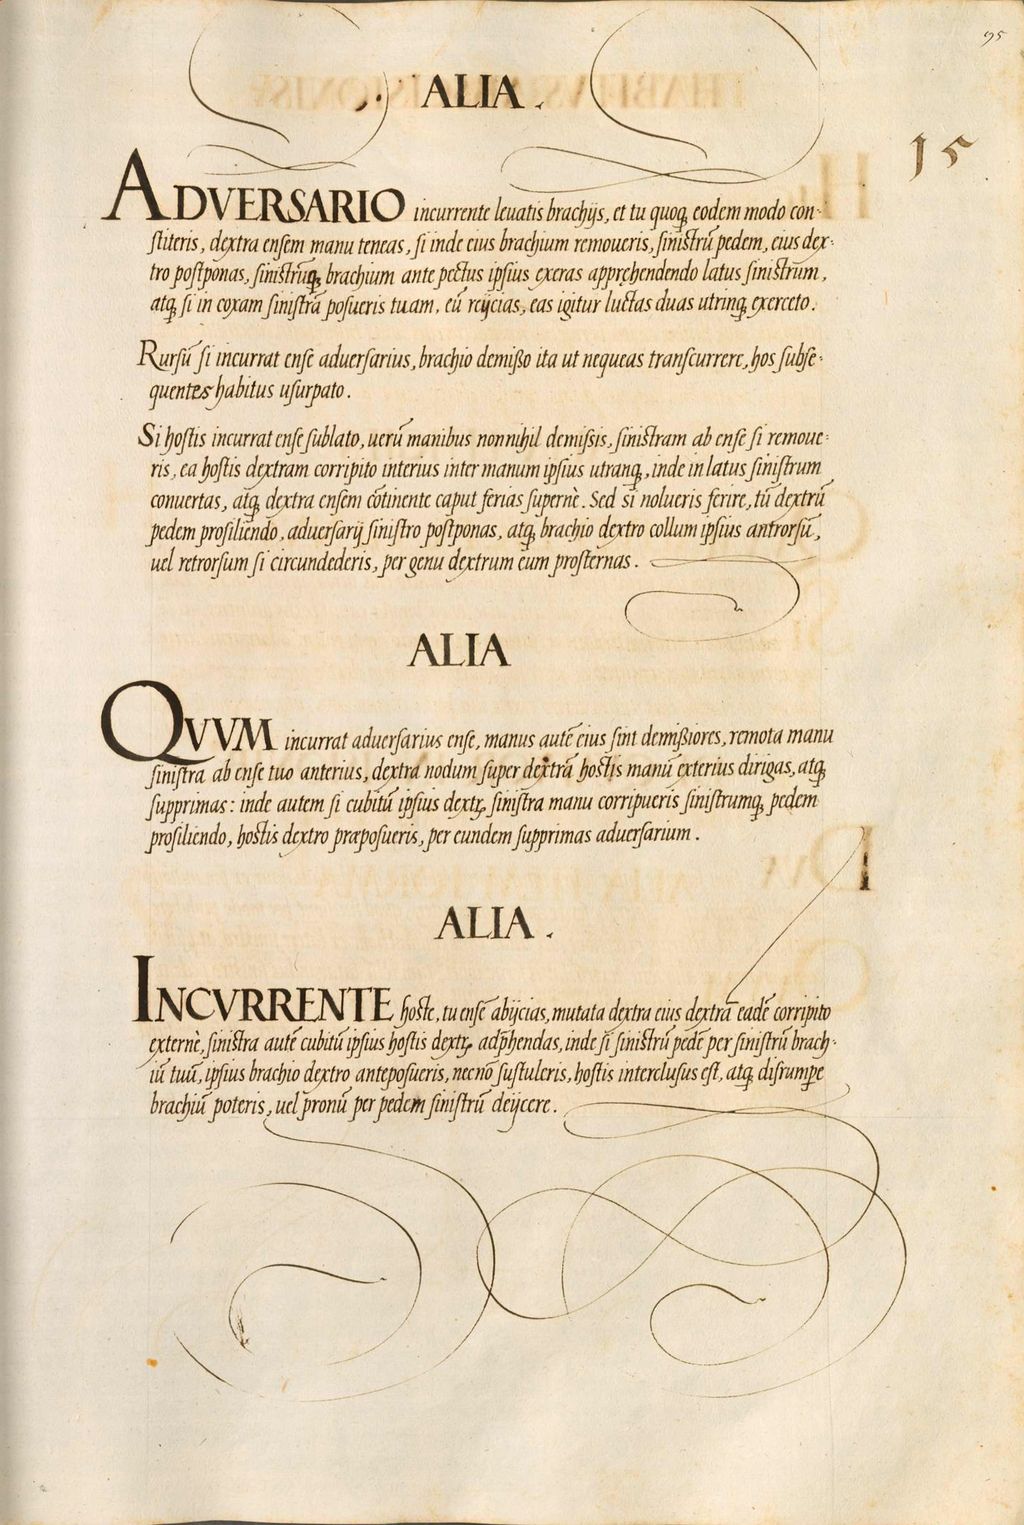 95
ALIA.
15
ADVERSARIO incurrente leuatis brachijs, et tu quoq; eodem modo con-
ſtiteris, dextra enſem manu teneas, ſi inde eius brachium remoueris, ſiniſtrū pedem, eius dex-
tro poſtponas, ſiniſtrūq; brachium ante pectus ipſius exeras apprehendendo latus ſiniſtrum,
atq; ſi in coxam ſiniſtrā poſueris tuam, eū reijcias, eas igitur luctas duas utrinq; exerceto.
Rurſū ſi incurrat enſe aduerſarius, brachio demiſſo ita ut nequeas tranſcurrere, hos ſubſe-
quentes habitus uſurpato.
Si hoſtis incurrat enſe ſublato, uerū manibus nonnihil demiſſis, ſiniſtram ab enſe ſi remoue-
ris, ea hoſtis dextram corripito interius inter manum ipſius utranq;, inde in latus ſiniſtrum
conuertas, atq; dextra enſem cōtinente caput ferias ſupernè. Sed si nolueris ferire, tū dextrū
pedem proſiliendo, aduerſarij ſiniſtro poſtponas, atq; brachio dextro collum ipſius antrorſū,
uel retrorſum ſi circundederis, per genu dextrum eum proſternas.
ALIA
QVVM incurrat aduerſarius enſe, manus autē eius ſint demiſſiores, remota manu
ſiniſtra ab enſe tuo anterius, dextra nodum ſuper dextrā hoſtis manū exterius dirigas, atq;
ſupprimas: inde autem ſi cubitū ipſius dextꝝ ſiniſtra manu corripueris ſiniſtrumq; pedem
proſiliendo, hoſtis dextro præpoſueris, per eundem ſupprimas aduerſarium.
ALIA.
INCVRRENTE hoſte, tu enſē abijcias, mutata dextra eius dextrā eadē corripito
externè, ſiniſtra autē cubitū ipſius hoſtis dextꝝ adp̄hendas, inde ſi ſiniſtrū pedē per ſiniſtrū brach-
iū tuū, ipſius brachio dextro antepoſueris, necnō ſuſtuleris, hoſtis interclusus eſt, atq; diſrumpe
brachiū poteris, uel pronū per pedem ſiniſtrū deijcere.